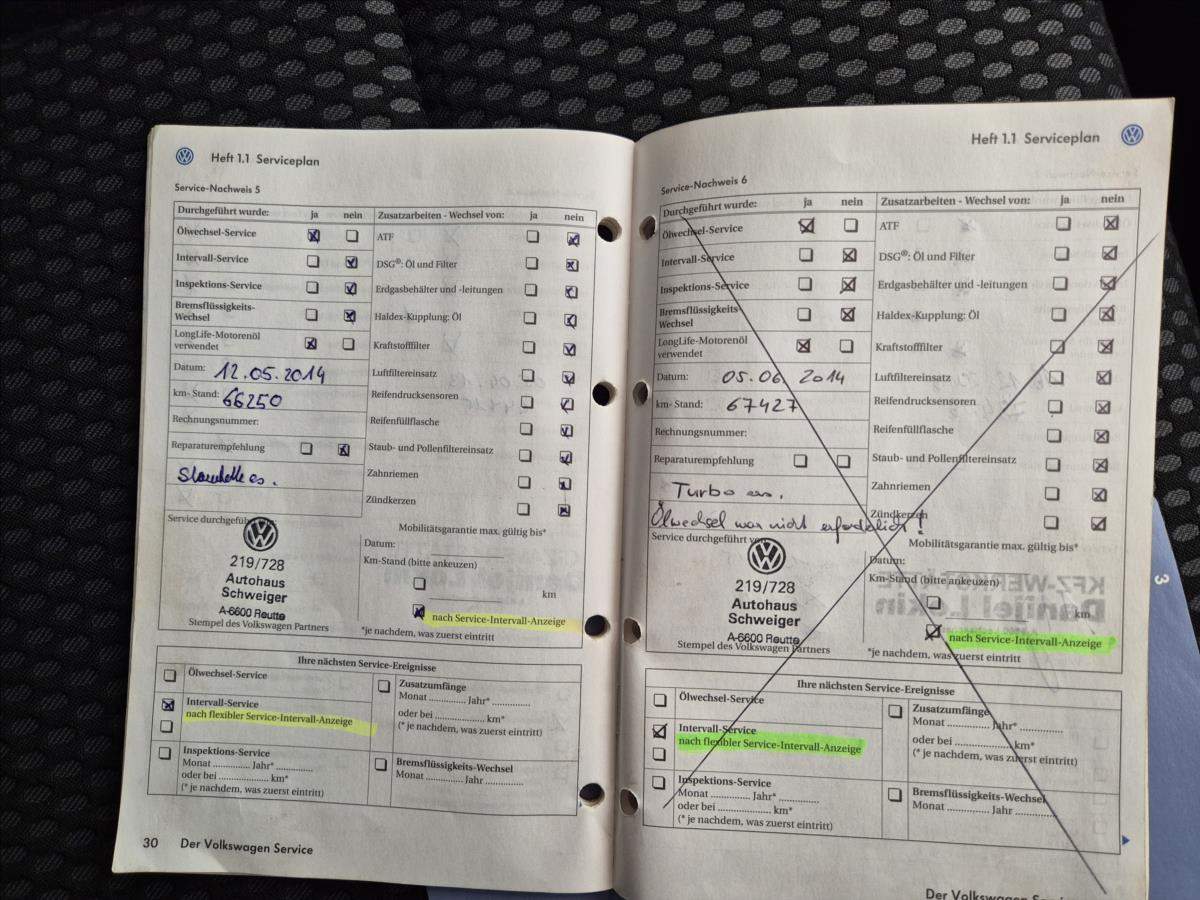 Heft 1.1 Serviceplan
Service-Nachweis 5
Durchgeführt wurde: ja nein
Ölwechsel-Service
Intervall-Service
Inspektions-Service
Bremsflüssigkeits-
Wechsel
LongLife-Motorenöl
verwendet
Datum: 12.05.2014
km- Stand: 66250
Rechnungsnummer:
Reparaturempfehlung
Zusatzarbeiten - Wechsel von: ja nein
ATF
DSG®: Öl und Filter
Erdgasbehälter und -leitungen
Haldex-Kupplung: Öl
Kraftstofffilter
Luftfiltereinsatz
Reifendrucksensoren
Reifenfüllflasche
Staub- und Pollenfiltereinsatz
Zahnriemen
Zündkerzen
Service durchgeführt
219/728
Autohaus
Schweiger
A-6600 Reutte
Stempel des Volkswagen Partners
Mobilitätsgarantie max. gültig bis*
Datum:
Km-Stand (bitte ankeuzen)
km
nach Service-Intervall-Anzeige
*je nachdem, was zuerst eintritt
Ihre nächsten Service-Ereignisse
Ölwechsel-Service
Intervall-Service
nach flexibler Service-Intervall-Anzeige
Inspektions-Service
Monat ............ Jahr* ............
oder bei ........................ km*
(* je nachdem, was zuerst eintritt)
Zusatzumfänge
Monat ............ Jahr* ............
oder bei ........................ km*
(* je nachdem, was zuerst eintritt)
Bremsflüssigkeits-Wechsel
Monat ............ Jahr ............
30 Der Volkswagen Service
Heft 1.1 Serviceplan
Service-Nachweis 6
Durchgeführt wurde: ja nein
Ölwechsel-Service
Intervall-Service
Inspektions-Service
Bremsflüssigkeits-
Wechsel
LongLife-Motorenöl
verwendet
Datum: 05.06.2014
km- Stand: 67427
Rechnungsnummer:
Reparaturempfehlung
Turbo ern.
Ölwechsel war nicht erforderlich!
Zusatzarbeiten - Wechsel von: ja nein
ATF
DSG®: Öl und Filter
Erdgasbehälter und -leitungen
Haldex-Kupplung: Öl
Kraftstofffilter
Luftfiltereinsatz
Reifendrucksensoren
Reifenfüllflasche
Staub- und Pollenfiltereinsatz
Zahnriemen
Zündkerzen
Service durchgeführt von
219/728
Autohaus
Schweiger
A-6600 Reutte
Stempel des Volkswagen Partners
Mobilitätsgarantie max. gültig bis*
Datum:
Km-Stand (bitte ankeuzen)
km
nach Service-Intervall-Anzeige
*je nachdem, was zuerst eintritt
Ihre nächsten Service-Ereignisse
Ölwechsel-Service
Intervall-Service
nach flexibler Service-Intervall-Anzeige
Inspektions-Service
Monat ............ Jahr* ............
oder bei ........................ km*
(* je nachdem, was zuerst eintritt)
Zusatzumfänge
Monat ............ Jahr* ............
oder bei ........................ km*
(* je nachdem, was zuerst eintritt)
Bremsflüssigkeits-Wechsel
Monat ............ Jahr ............
Der Volkswagen
3